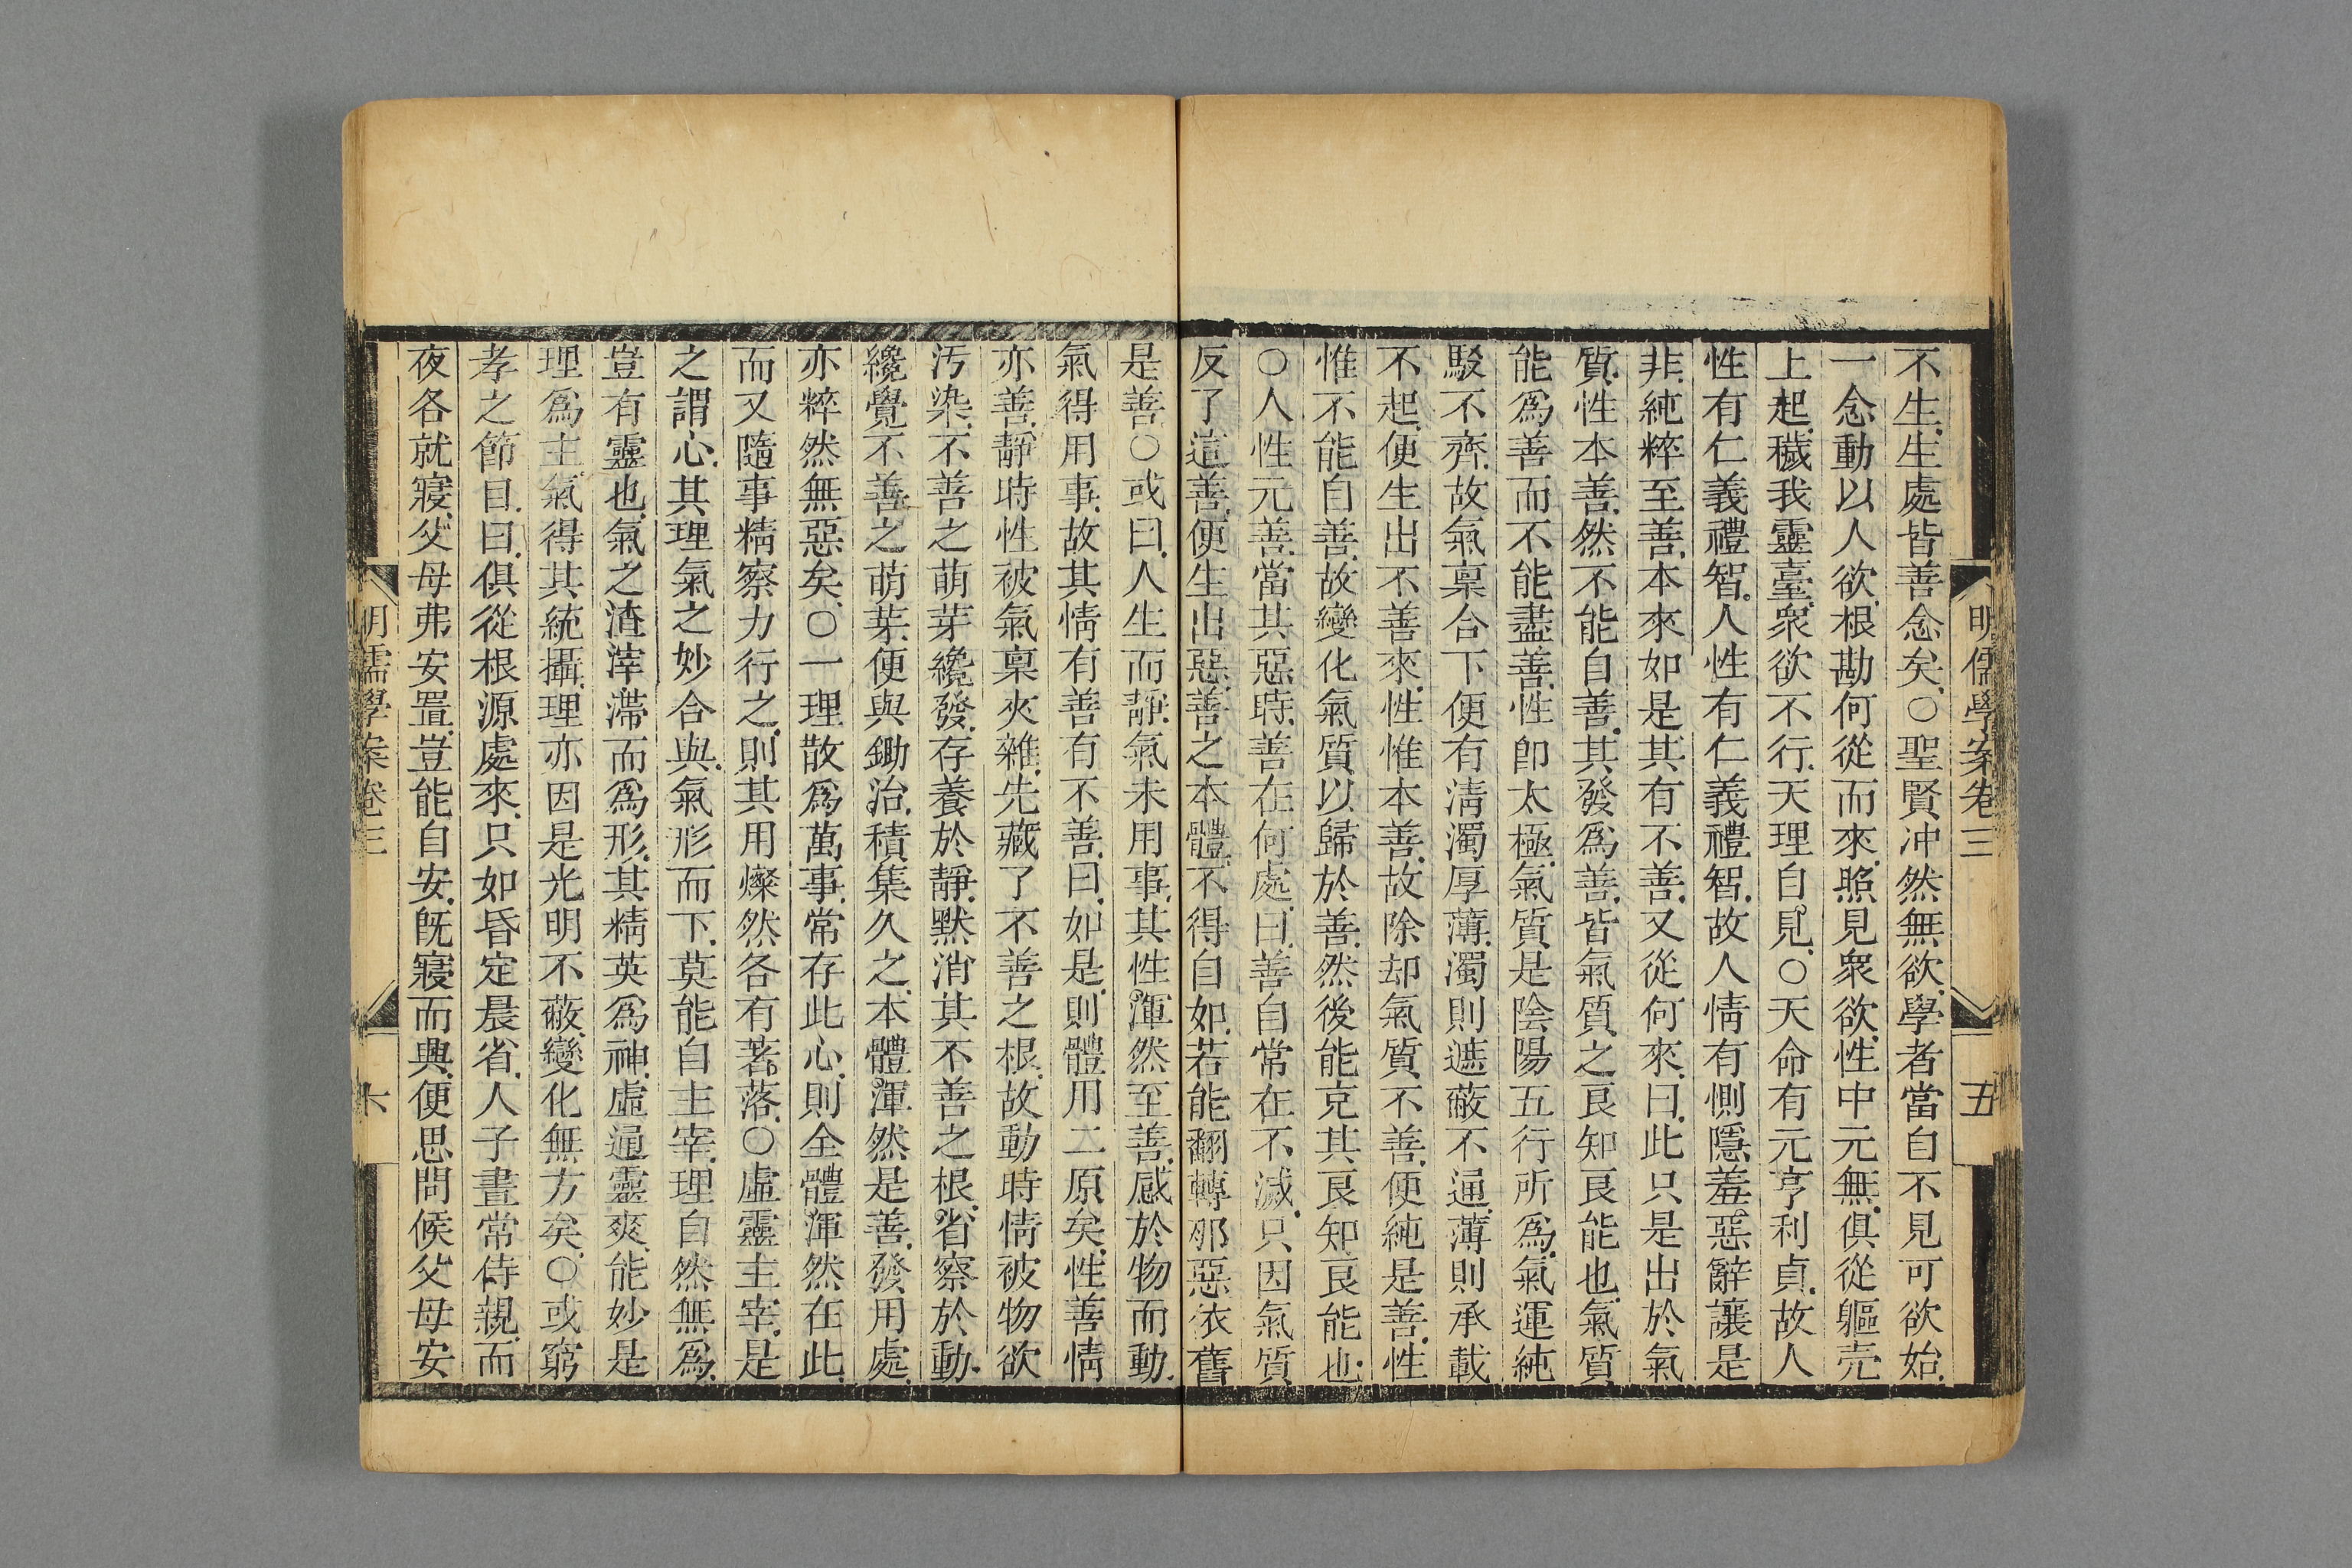 明儒學案卷三
五
不生.生處皆善念矣.○聖賢冲然無欲.學者當自不見可欲始.
一念動以人欲.根勘何從而來.照見衆欲.性中元無.俱從軀壳
上起.穢我靈臺.衆欲不行.天理自見.○天命有元亨利貞.故人
性有仁義禮智.人性有仁義禮智.故人情有惻隱羞惡辭讓是
非.純粹至善.本來如是.其有不善.又從何來.曰.此只是出於氣
質.性本善.然不能自善.其發爲善.皆氣質之良知良能也.氣質
能爲善而不能盡善.性卽太極.氣質是陰陽五行所爲.氣運純
駁不齊.故氣稟合下便有淸濁厚薄.濁則遮蔽不通.薄則承載
不起.便生出不善來.性惟本善.故除却氣質不善.便純是善.性
惟不能自善.故變化氣質以歸於善.然後能克其良知良能也.
○人性元善.當其惡時.善在何處.曰.善自常在不滅.只因氣質
反了這善.便生出惡.善之本體.不得自如.若能翻轉邪惡.依舊
是善.○或曰.人生而靜.氣未用事.其性渾然至善.感於物而動.
氣得用事.故其情有善有不善.曰.如是.則體用二原矣.性善情
亦善.靜時性被氣稟夾雜.先藏了不善之根.故動時情被物欲
汚染.不善之萌芽纔發.存養於靜.默消其不善之根.省察於動.
纔覺不善之萌芽.便與鋤治.積集久之.本體渾然是善.發用處.
亦粹然無惡矣.○一理散爲萬事.常存此心.則全體渾然在此.
而又隨事精察力行之.則其用燦然各有著落.○虛靈主宰.是
之謂心.其理氣之妙合與.氣形而下.莫能自主宰.理自然無爲.
豈有靈也.氣之渣滓滯而爲形.其精英爲神.虛通靈爽.能妙是
理爲主.氣得其統攝.理亦因是光明不蔽.變化無方矣.○或窮
孝之節目.曰.俱從根源處來.只如昏定晨省.人子晝常侍親.而
夜各就寢.父母弗安置.豈能自安.旣寢而興.便思問候父母安
明儒學案卷三
六